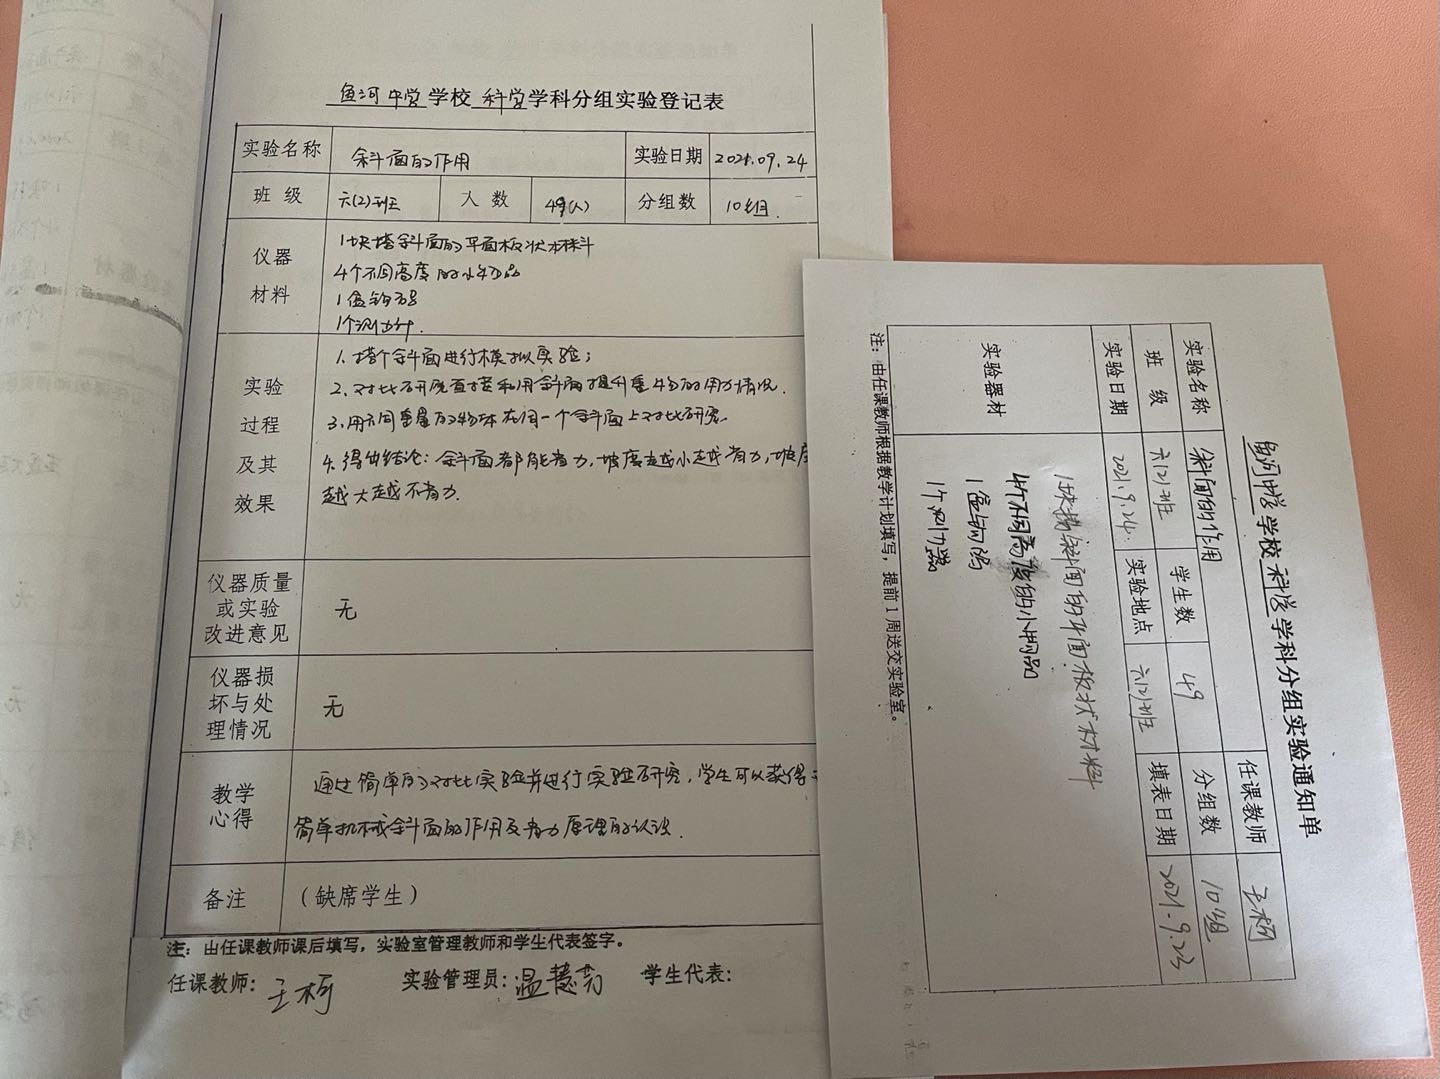 鱼河中学学校 科学学科分组实验登记表
实验名称 斜面的作用 实验日期 2021.09.24
班级 六(2)班 人数 49(人) 分组数 10组.
仪器材料
1块搭斜面的平面板状材料
4个不同高度的小物品
1盒钩码
1个测力计.
实验过程及其效果
1、搭个斜面进行模拟实验;
2、对比研究直接和用斜面提升重物的用力情况.
3、用不同重量的物体在同一个斜面上对比研究.
4、得出结论：斜面都能省力,坡度越小越省力,坡度
越大越不省力.
仪器质量或实验改进意见 无
仪器损坏与处理情况 无
教学心得
通过简单的对比实验并进行实验研究,学生可以获得
简单机械斜面的作用及省力原理的认识.
备注 （缺席学生）
注：由任课教师课后填写，实验室管理教师和学生代表签字。
任课教师：王柯 实验管理员：温慧芳 学生代表：
鱼河中学学校科学学科分组实验通知单
实验名称 斜面的作用 任课教师 王柯
班级 六(2)班 学生数 49 分组数 10组
实验日期 2021.9.24. 实验地点 六(2)班 填表日期 2021.9.23
实验器材
1块搭斜面的平面板状材料
4个不同高度的小物品
1盒钩码
1个测力器
注：由任课教师根据教学计划填写，提前1周送交实验室。